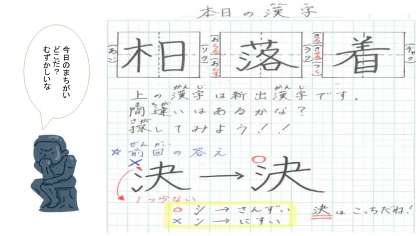 本日の漢字
今日のまちがい
どこだ?
むずかしいな
相 落 着
上の漢字は新出漢字です。
間違いはあるかな?
探してみよう!!
☆前回の答え
決→決
1つ少ない
○ 氵→さんずい
× 冫→にすい
決はこっちだね!